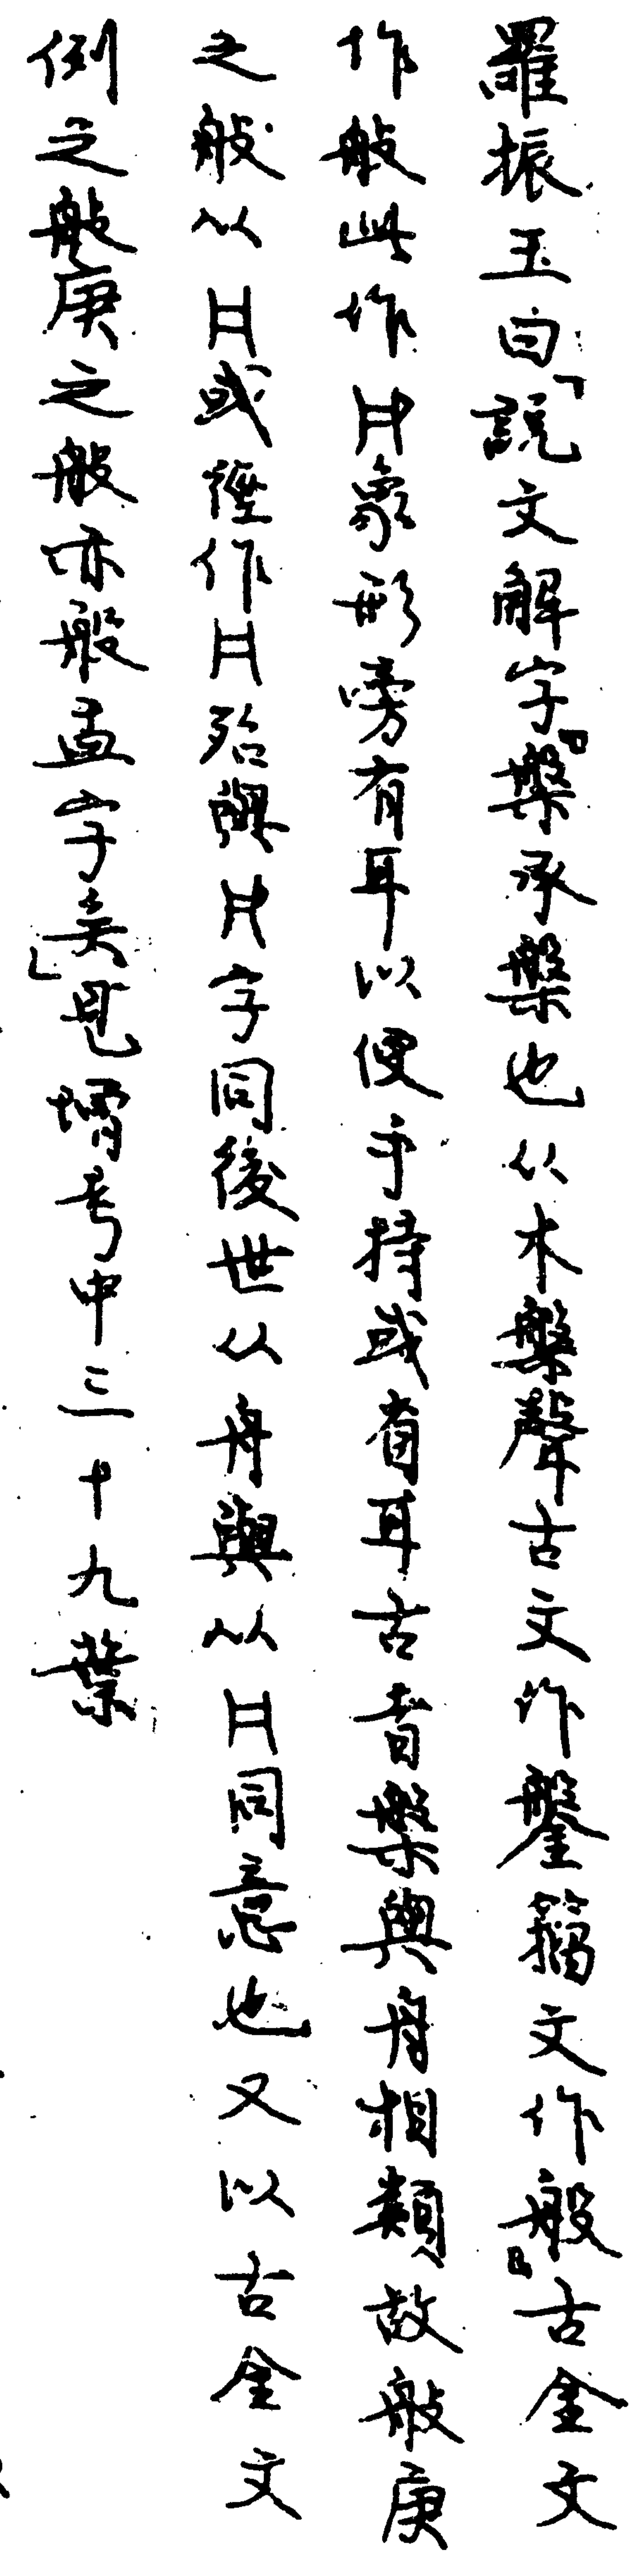 羅振玉曰「說文解字『槃承槃也从木般聲古文作鎜籀文作盤』古金文
作般此作𠙴象形旁有耳以便手持或省耳古者槃與舟相類故般庚
之般从or或徑作殆與字同後世从舟與从同意也又以古金文
例之般庚之般亦般盂字矣」見增考中三十九葉